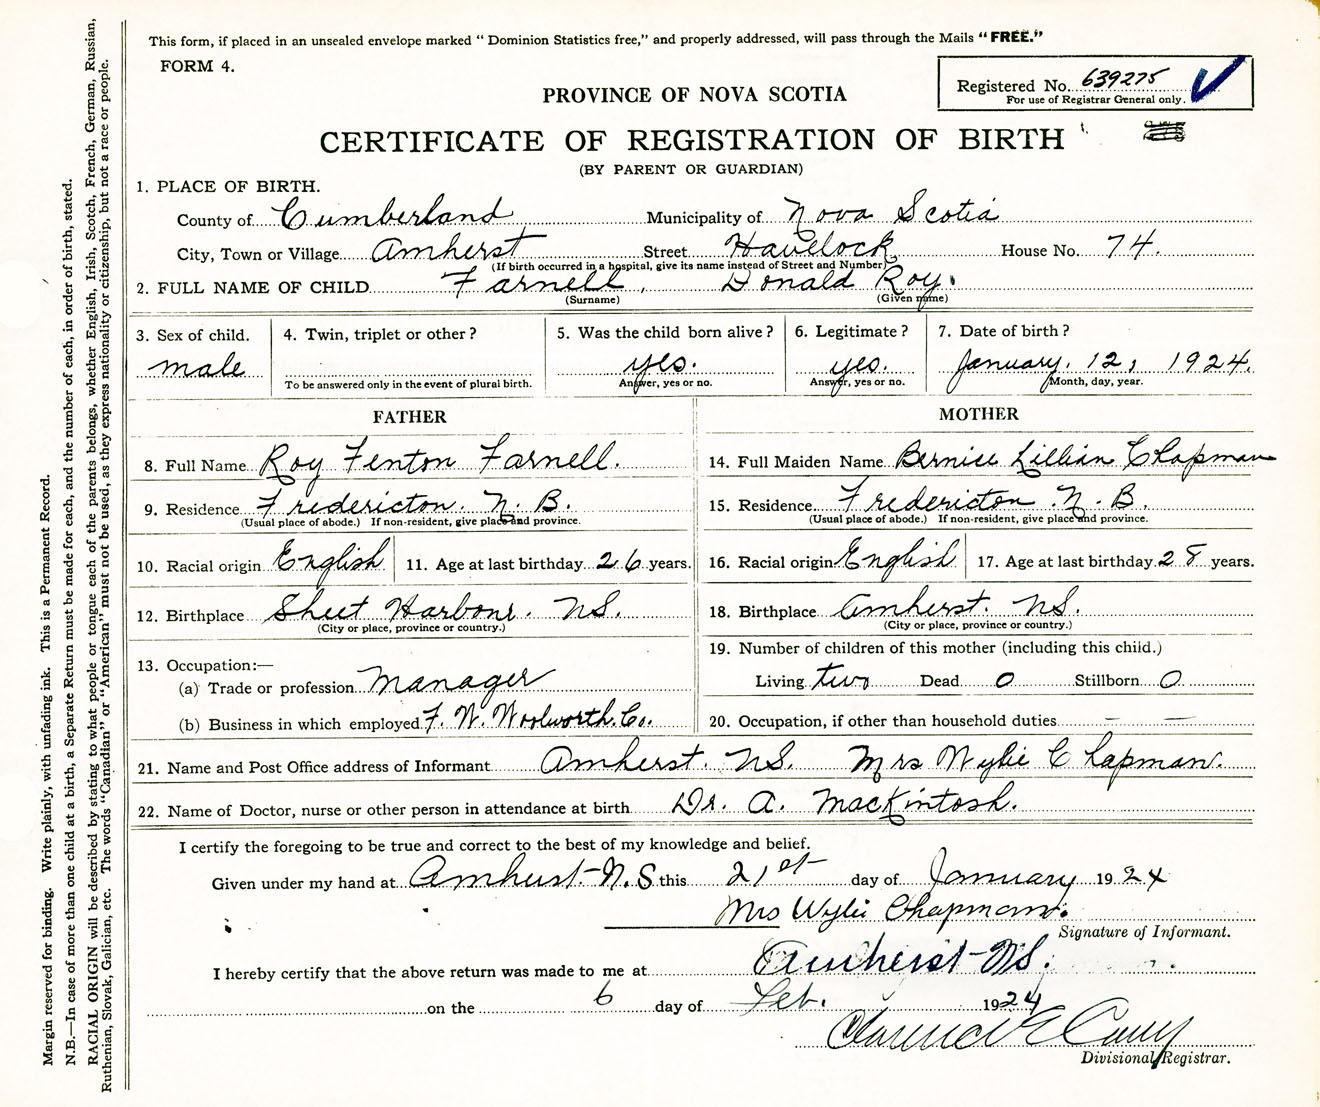 This form, if placed in an unsealed envelope marked "Dominion Statistics free," and properly addressed, will pass through the Mails "FREE."
FORM 4.
Registered No. 639275
For use of Registrar General only.
PROVINCE OF NOVA SCOTIA
CERTIFICATE OF REGISTRATION OF BIRTH
(BY PARENT OR GUARDIAN)
1. PLACE OF BIRTH.
County of Cumberland Municipality of Nova Scotia
City, Town or Village Amherst Street Havelock House No. 74.
(If birth occurred in a hospital, give its name instead of Street and Number)
2. FULL NAME OF CHILD Farnell, Donald Roy.
(Surname) (Given name)
3. Sex of child. 4. Twin, triplet or other? 5. Was the child born alive? 6. Legitimate? 7. Date of birth?
male yes. yes. January. 12, 1924.
To be answered only in the event of plural birth. Answer, yes or no. Answer, yes or no. Month, day, year.
FATHER MOTHER
8. Full Name Roy Fenton Farnell. 14. Full Maiden Name Bernice Lillian Chapman
9. Residence Fredericton. N. B. 15. Residence Fredericton. N. B.
(Usual place of abode.) If non-resident, give place and province. (Usual place of abode.) If non-resident, give place and province.
10. Racial origin English 11. Age at last birthday 26 years. 16. Racial origin English 17. Age at last birthday 28 years.
12. Birthplace Sheet Harbour. N.S. 18. Birthplace Amherst. N.S.
(City or place, province or country.) (City or place, province or country.)
13. Occupation:— 19. Number of children of this mother (including this child.)
(a) Trade or profession Manager Living two Dead 0 Stillborn 0
(b) Business in which employed F. W. Woolworth. Co. 20. Occupation, if other than household duties — —
21. Name and Post Office address of Informant Amherst. N.S. Mrs Wylie Chapman.
22. Name of Doctor, nurse or other person in attendance at birth Dr. A. MacKintosh.
I certify the foregoing to be true and correct to the best of my knowledge and belief.
Given under my hand at Amherst-N.S this 21st day of January 1924
Mrs Wylie Chapman.
Signature of Informant.
I hereby certify that the above return was made to me at Amherst-N.S.
on the 6 day of Feb. 1924
Divisional Registrar.
Margin reserved for binding. Write plainly, with unfading ink. This is a Permanent Record.
N.B.—In case of more than one child at a birth, a Separate Return must be made for each, and the number of each, in order of birth, stated.
RACIAL ORIGIN will be described by stating to what people or tongue each of the parents belongs, whether English, Irish, Scotch, French, German, Russian,
Ruthenian, Slovak, Galician, etc. The words "Canadian" or "American" must not be used, as they express nationality or citizenship, but not a race or people.